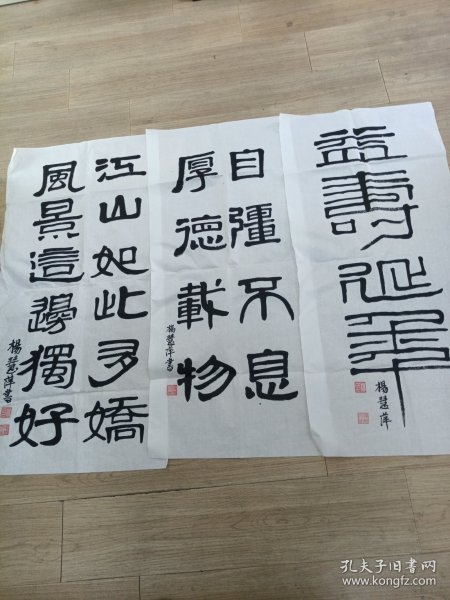 益壽延年
楊慧萍
自彊不息
厚德載物
楊慧萍書
江山如此多嬌
風景這邊獨好
楊慧萍書
孔夫子旧书网
www.kongfz.com